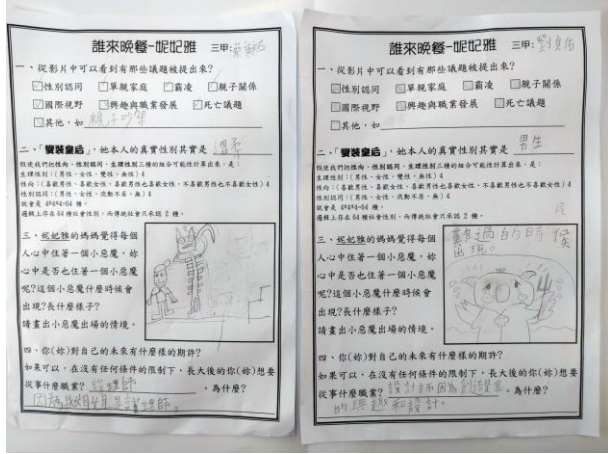 誰來晚餐-妮妃雅 三甲:
一、從影片中可以看到有那些議題被提出來?
☑性別認同 ☑單親家庭 ☑霸凌 ☑親子關係
☑國際視野 ☑興趣與職業發展 ☑死亡議題
☐其他,如 親子吵架
二、「變裝皇后」,她本人的真實性別其實是
假使我們把性向、性別認同、生理性別三種的組合可能性計算出來,是:
生理性別:(男性、女性、雙性、無性)4
性向:(喜歡男性、喜歡女性、喜歡男性也喜歡女性、不喜歡男性也不喜歡女性)4
性別認同:(男性、女性、流動不居、無)4
就會是 4*4*4=64 種。
邏輯上存在 64 種社會性別,而傳統社會只承認 2 種。
三、妮妃雅的媽媽覺得每個
人心中住著一個小惡魔,妳
心中是否也住著一個小惡魔
呢?這個小惡魔什麼時候會
出現?長什麼樣子?
請畫出小惡魔出場的情境。
四、你(妳)對自己的未來有什麼樣的期許?
如果可以,在沒有任何條件的限制下,長大後的你(妳)想要
從事什麼職業? 護理師 。為什麼?
因為我媽媽是護理師。
誰來晚餐-妮妃雅 三甲:
一、從影片中可以看到有那些議題被提出來?
☑性別認同 ☐單親家庭 ☐霸凌 ☑親子關係
☐國際視野 ☐興趣與職業發展 ☐死亡議題
☐其他,如
二、「變裝皇后」,她本人的真實性別其實是 男生
假使我們把性向、性別認同、生理性別三種的組合可能性計算出來,是:
生理性別:(男性、女性、雙性、無性)4
性向:(喜歡男性、喜歡女性、喜歡男性也喜歡女性、不喜歡男性也不喜歡女性)4
性別認同:(男性、女性、流動不居、無)4
就會是 4*4*4=64 種。
邏輯上存在 64 種社會性別,而傳統社會只承認 2 種。
三、妮妃雅的媽媽覺得每個
人心中住著一個小惡魔,妳
心中是否也住著一個小惡魔
呢?這個小惡魔什麼時候會
出現?長什麼樣子?
請畫出小惡魔出場的情境。
難過的時候
出現。
四、你(妳)對自己的未來有什麼樣的期許?
如果可以,在沒有任何條件的限制下,長大後的你(妳)想要
從事什麼職業? 設計師因為 。為什麼?
的興趣和設計。